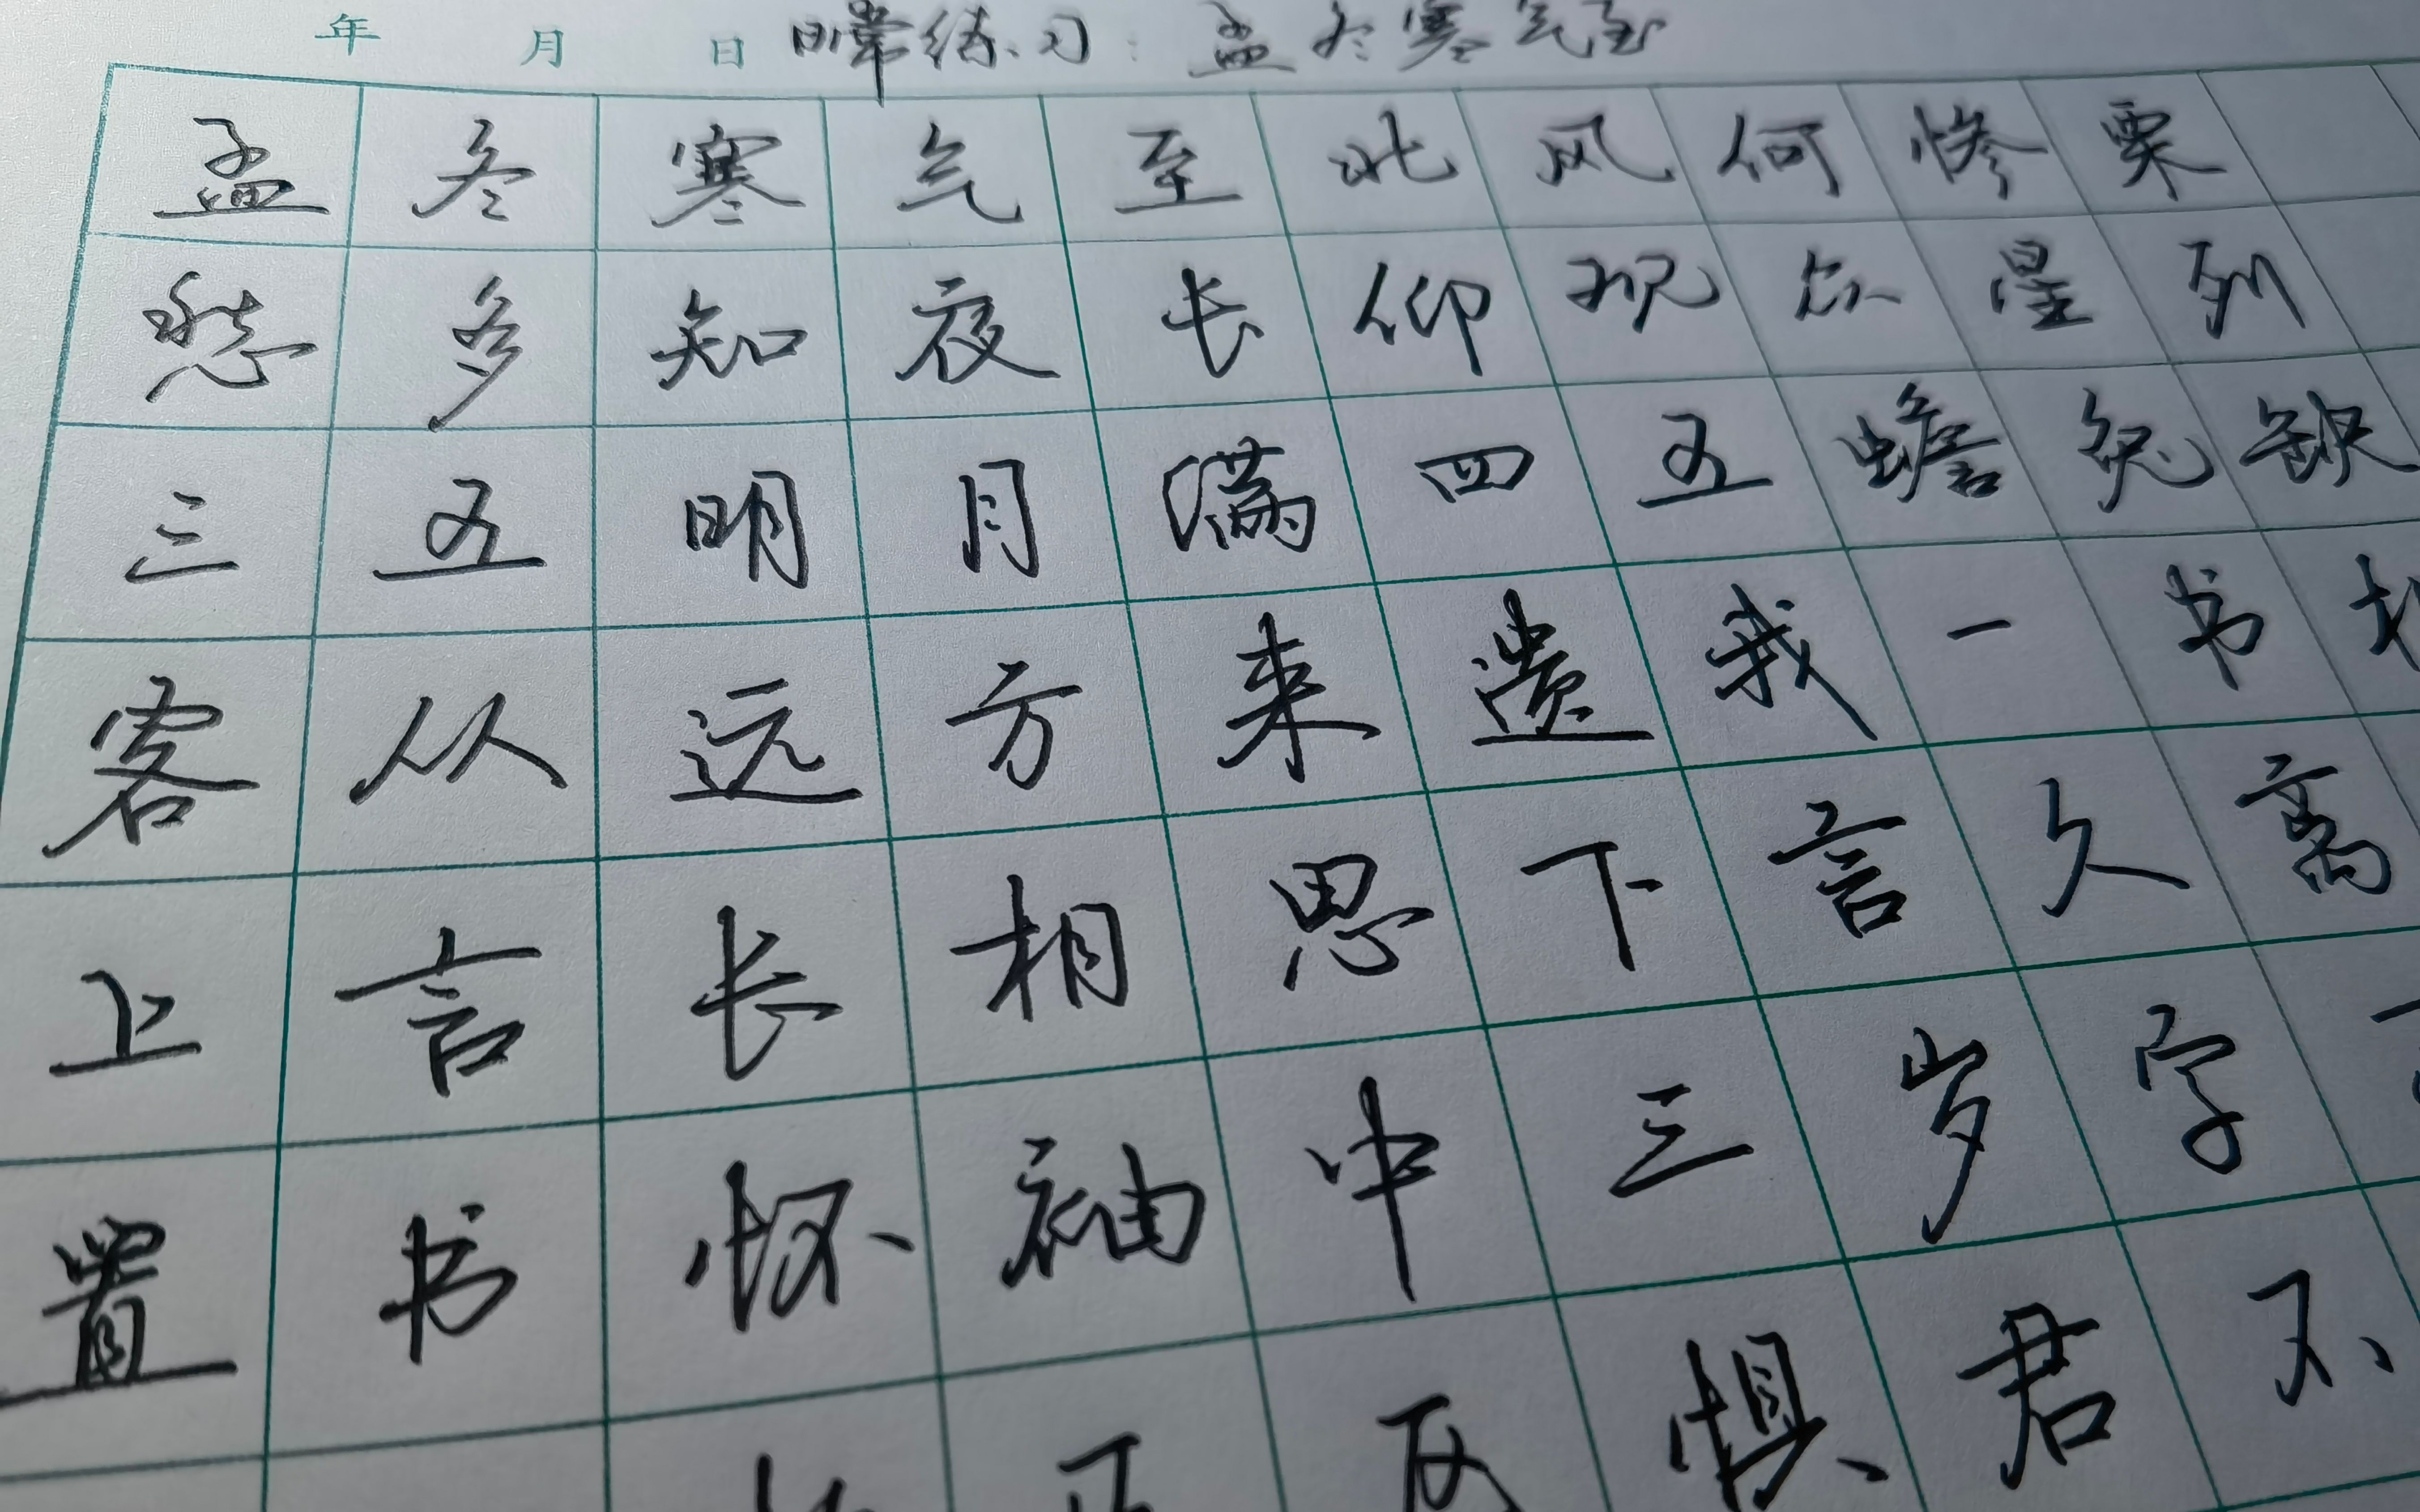 年 月 日 日常练习：孟冬寒气至
孟冬寒气至北风何惨栗
愁多知夜长仰观众星列
三五明月满四五蟾兔缺
客从远方来遗我一书
上言长相思下言久离
置书怀袖中三岁字
惧君不